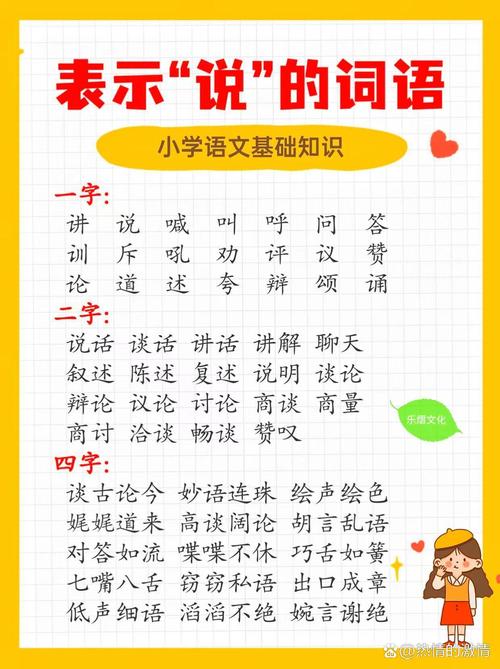 表示“说”的词语
小学语文基础知识
一字:
讲 说 喊 叫 呼 问 答
训 斥 吼 劝 评 议 赞
论 道 述 夸 辩 颂 诵
二字:
说话 谈话 讲话 讲解 聊天
叙述 陈述 复述 说明 谈论
辩论 议论 讨论 商谈 商量
商讨 洽谈 畅谈 赞叹
乐熠文化
四字:
谈古论今 妙语连珠 绘声绘色
娓娓道来 高谈阔论 胡言乱语
对答如流 喋喋不休 巧舌如簧
七嘴八舌 窃窃私语 出口成章
低声细语 滔滔不绝 婉言谢绝
@热情的激情